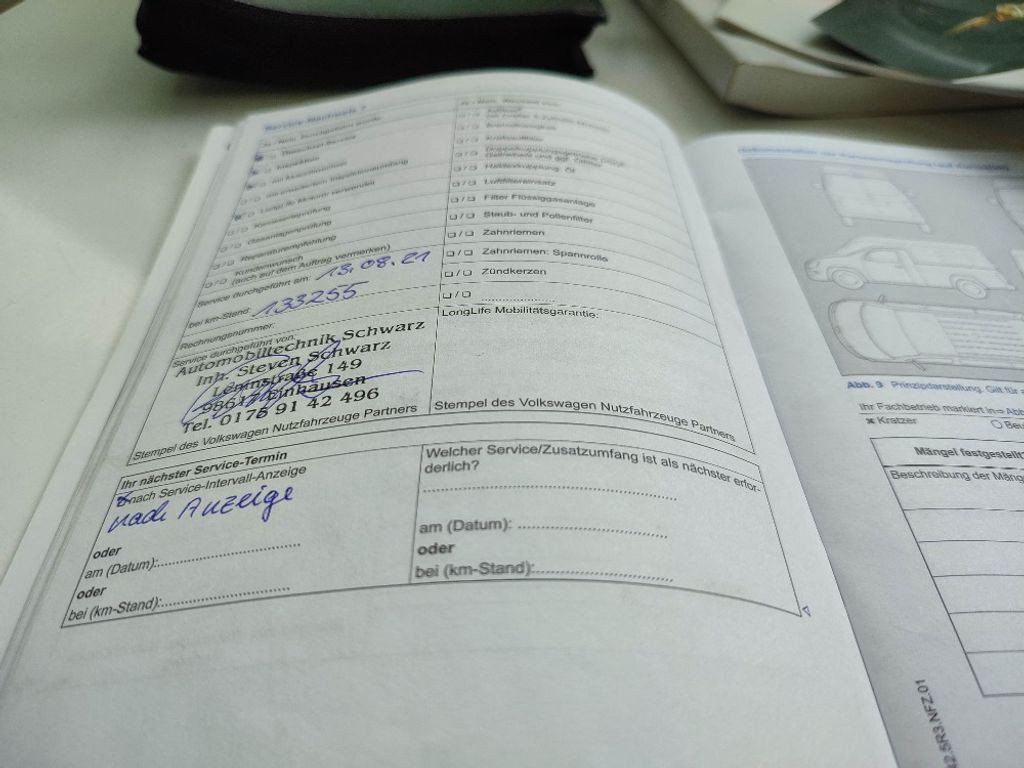 Service-Nachweis
Ja / Nein, Wechsel von:
Inspektion
LongLife Motoröl verwendet
Karosserieprüfung
Reparaturempfehlung
Kundenwunsch
(auch auf dem Auftrag vermerken)
Service durchgeführt am: 13.08.21
bei km-Stand: 133255
Rechnungsnummer:
Service durchgeführt von:
Automobiltechnik Schwarz
Inh. Steven Schwarz
Leninstraße 149
Tel. 0175 91 42 496
Stempel des Volkswagen Nutzfahrzeuge Partners
Bremsflüssigkeit
Kraftstofffilter
Haldexkupplung: Öl
Luftfiltereinsatz
Filter Flüssiggasanlage
Staub- und Pollenfilter
Zahnriemen
Zahnriemen: Spannrolle
Zündkerzen
LongLife Mobilitätsgarantie:
Stempel des Volkswagen Nutzfahrzeuge Partners
Ihr nächster Service-Termin
nach Service-Intervall-Anzeige
nach Anzeige
oder
am (Datum):
oder
bei (km-Stand):
Welcher Service/Zusatzumfang ist als nächster erfor-
derlich?
am (Datum):
oder
bei (km-Stand):
Abb. 9 Prinzipdarstellung. Gilt für
Ihr Fachbetrieb markiert in ⇒ Abb
× Kratzer
Mängel festgestellt
Beschreibung der Mäng
2.5R3.NFZ.01